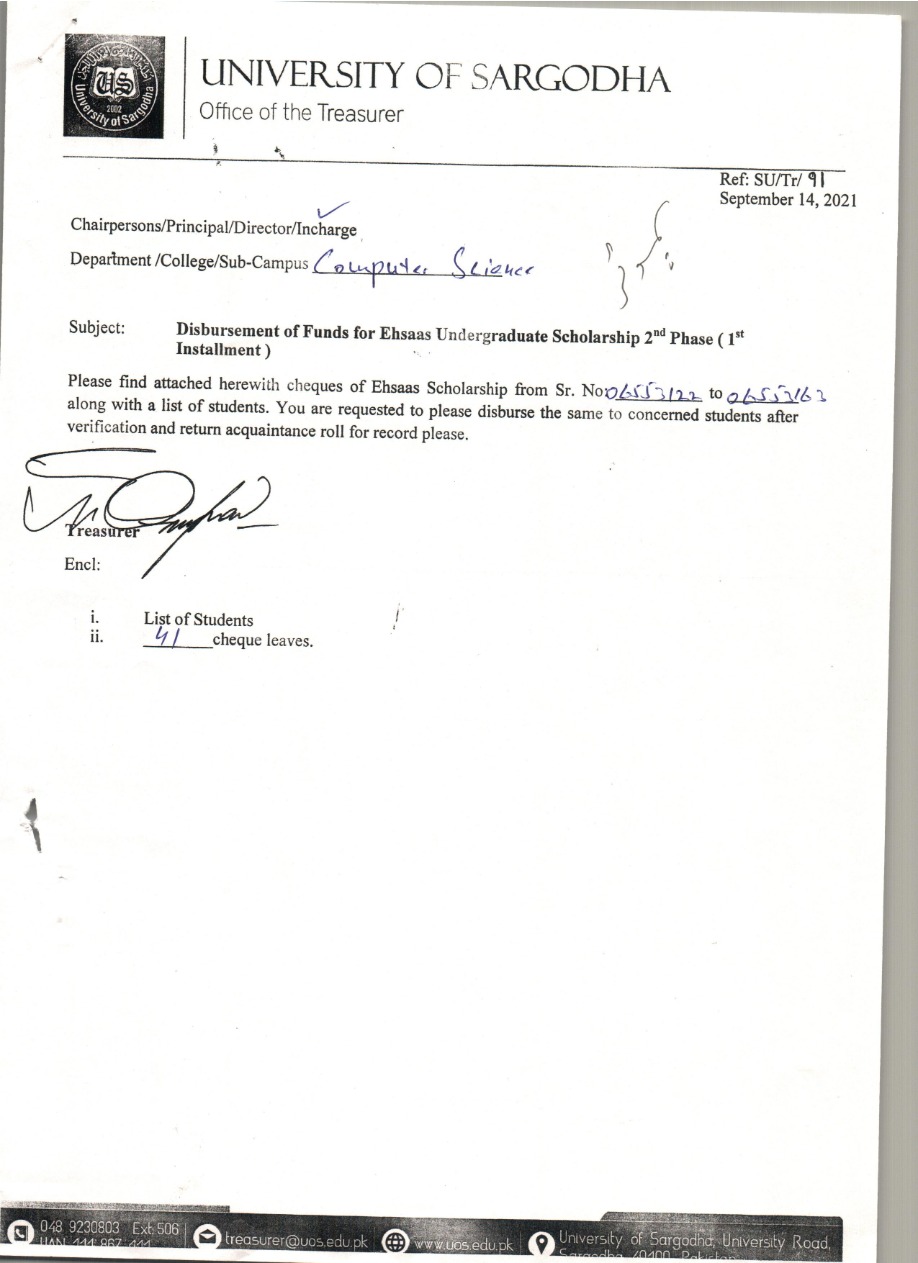 US
2002
University of Sargodha
UNIVERSITY OF SARGODHA
Office of the Treasurer
Ref: SU/Tr/ 91
September 14, 2021
Chairpersons/Principal/Director/Incharge
Department /College/Sub-Campus Computer Science
Subject: Disbursement of Funds for Ehsaas Undergraduate Scholarship 2nd Phase ( 1st
Installment )
Please find attached herewith cheques of Ehsaas Scholarship from Sr. No 06553122 to 06553163
along with a list of students. You are requested to please disburse the same to concerned students after
verification and return acquaintance roll for record please.
Treasurer
Encl:
i. List of Students
ii. 41 cheque leaves.
048 9230803 Ext:506
UAN 111 867 111
treasurer@uos.edu.pk
www.uos.edu.pk
University of Sargodha, University Road,
Sargodha 40100, Pakistan